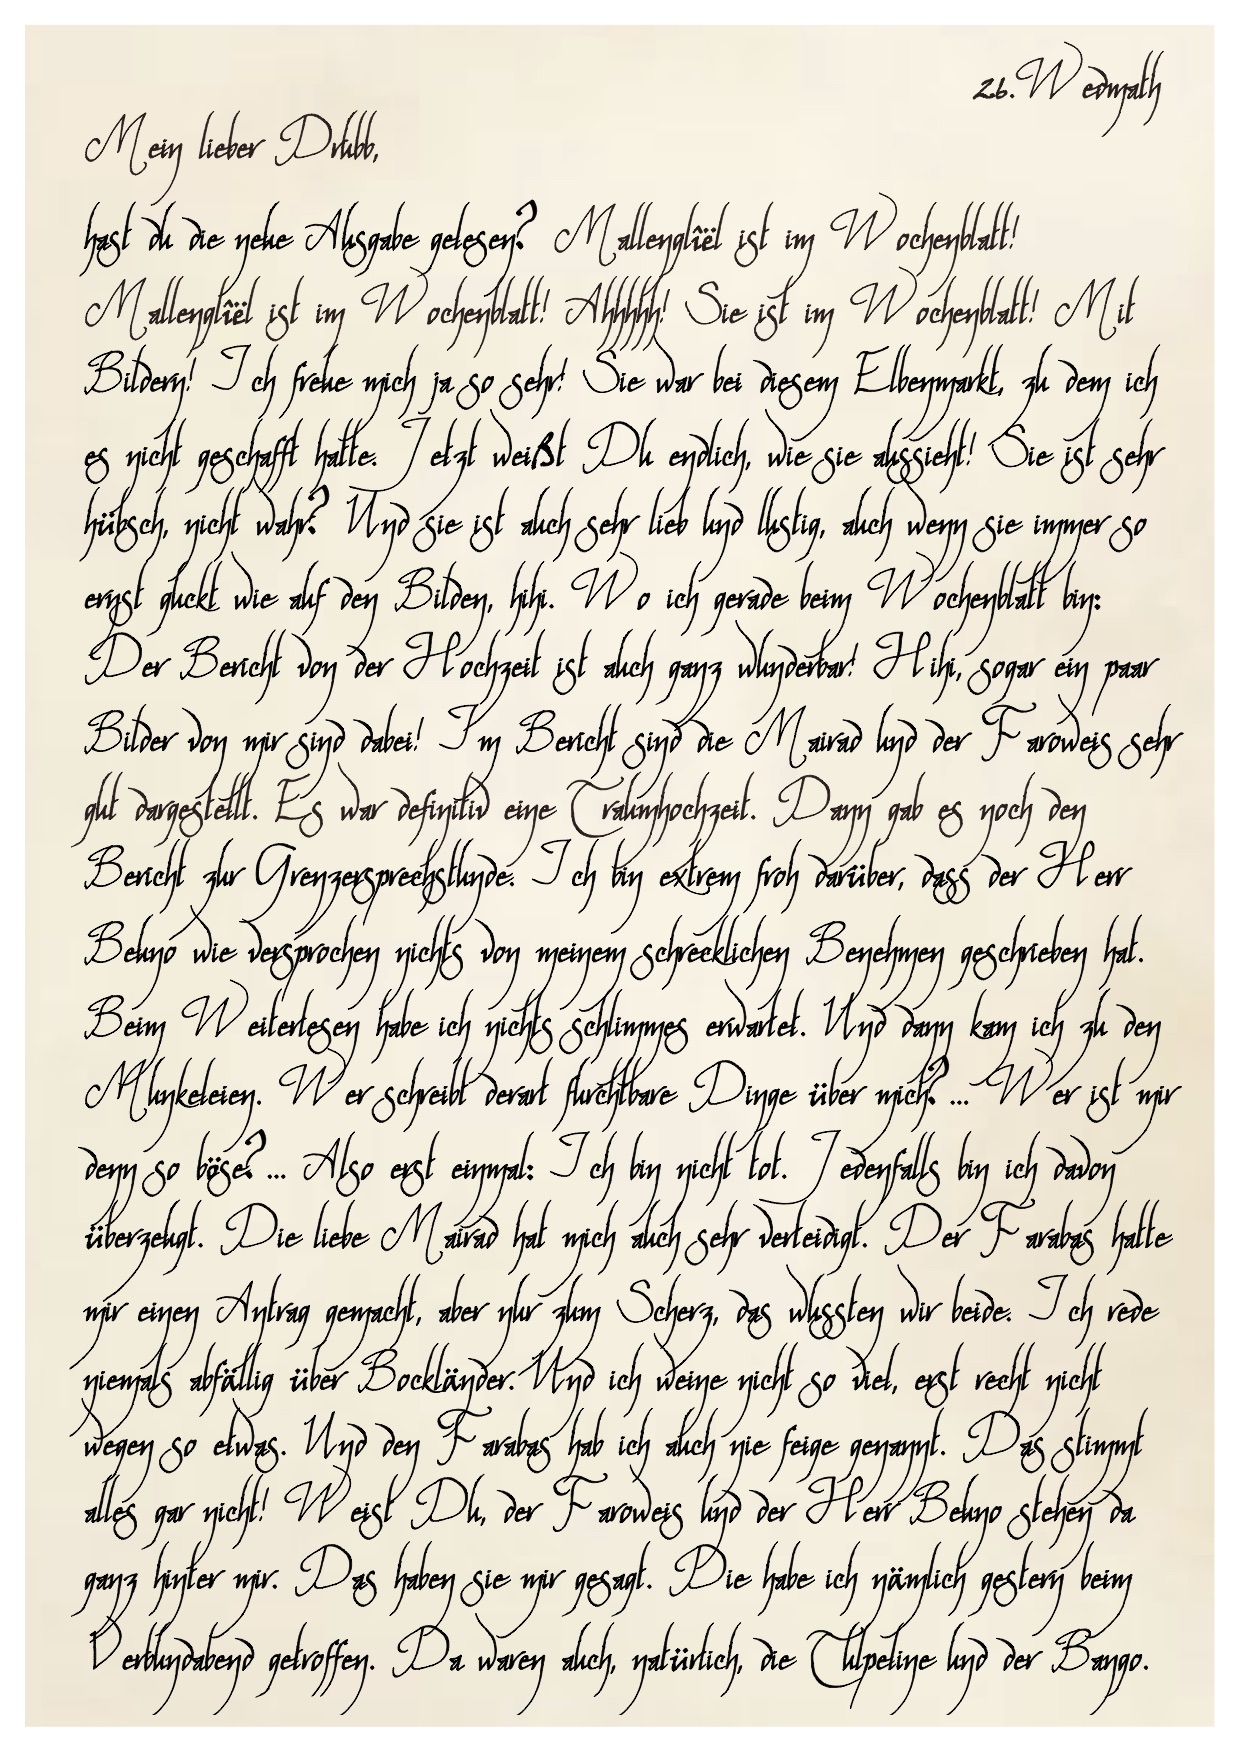 26. Wedmath
Mein lieber Drubb,
hast du die neue Ausgabe gelesen? Mallenglîël ist im Wochenblatt!
Mallenglîël ist im Wochenblatt! Ahhhhh! Sie ist im Wochenblatt! Mit
Bildern! Ich freue mich ja so sehr! Sie war bei diesem Elbenmarkt, zu dem ich
es nicht geschafft hatte. Jetzt weißt Du endlich, wie sie aussieht! Sie ist sehr
hübsch, nicht wahr? Und sie ist auch sehr lieb und lustig, auch wenn sie immer so
ernst guckt wie auf den Bilden, hihi. Wo ich gerade beim Wochenblatt bin:
Der Bericht von der Hochzeit ist auch ganz wunderbar! Hihi, sogar ein paar
Bilder von mir sind dabei! Im Bericht sind die Mairad und der Faroweis sehr
gut dargestellt. Es war definitiv eine Traumhochzeit. Dann gab es noch den
Bericht zur Grenzersprechstunde. Ich bin extrem froh darüber, dass der Herr
Beuno wie versprochen nichts von meinem schrecklichen Benehmen geschrieben hat.
Beim Weiterlesen habe ich nichts schlimmes erwartet. Und dann kam ich zu den
Munkeleien. Wer schreibt derart furchtbare Dinge über mich? ... Wer ist mir
denn so böse? ... Also erst einmal: Ich bin nicht tot. Jedenfalls bin ich davon
überzeugt. Die liebe Mairad hat mich auch sehr verteidigt. Der Farabas hatte
mir einen Antrag gemacht, aber nur zum Scherz, das wussten wir beide. Ich rede
niemals abfällig über Bockländer. Und ich weine nicht so viel, erst recht nicht
wegen so etwas. Und den Farabas hab ich auch nie feige genannt. Das stimmt
alles gar nicht! Weist Du, der Faroweis und der Herr Beuno stehen da
ganz hinter mir. Das haben sie mir gesagt. Die habe ich nämlich gestern beim
Verbundabend getroffen. Da waren auch, natürlich, die Tulpeline und der Bango.